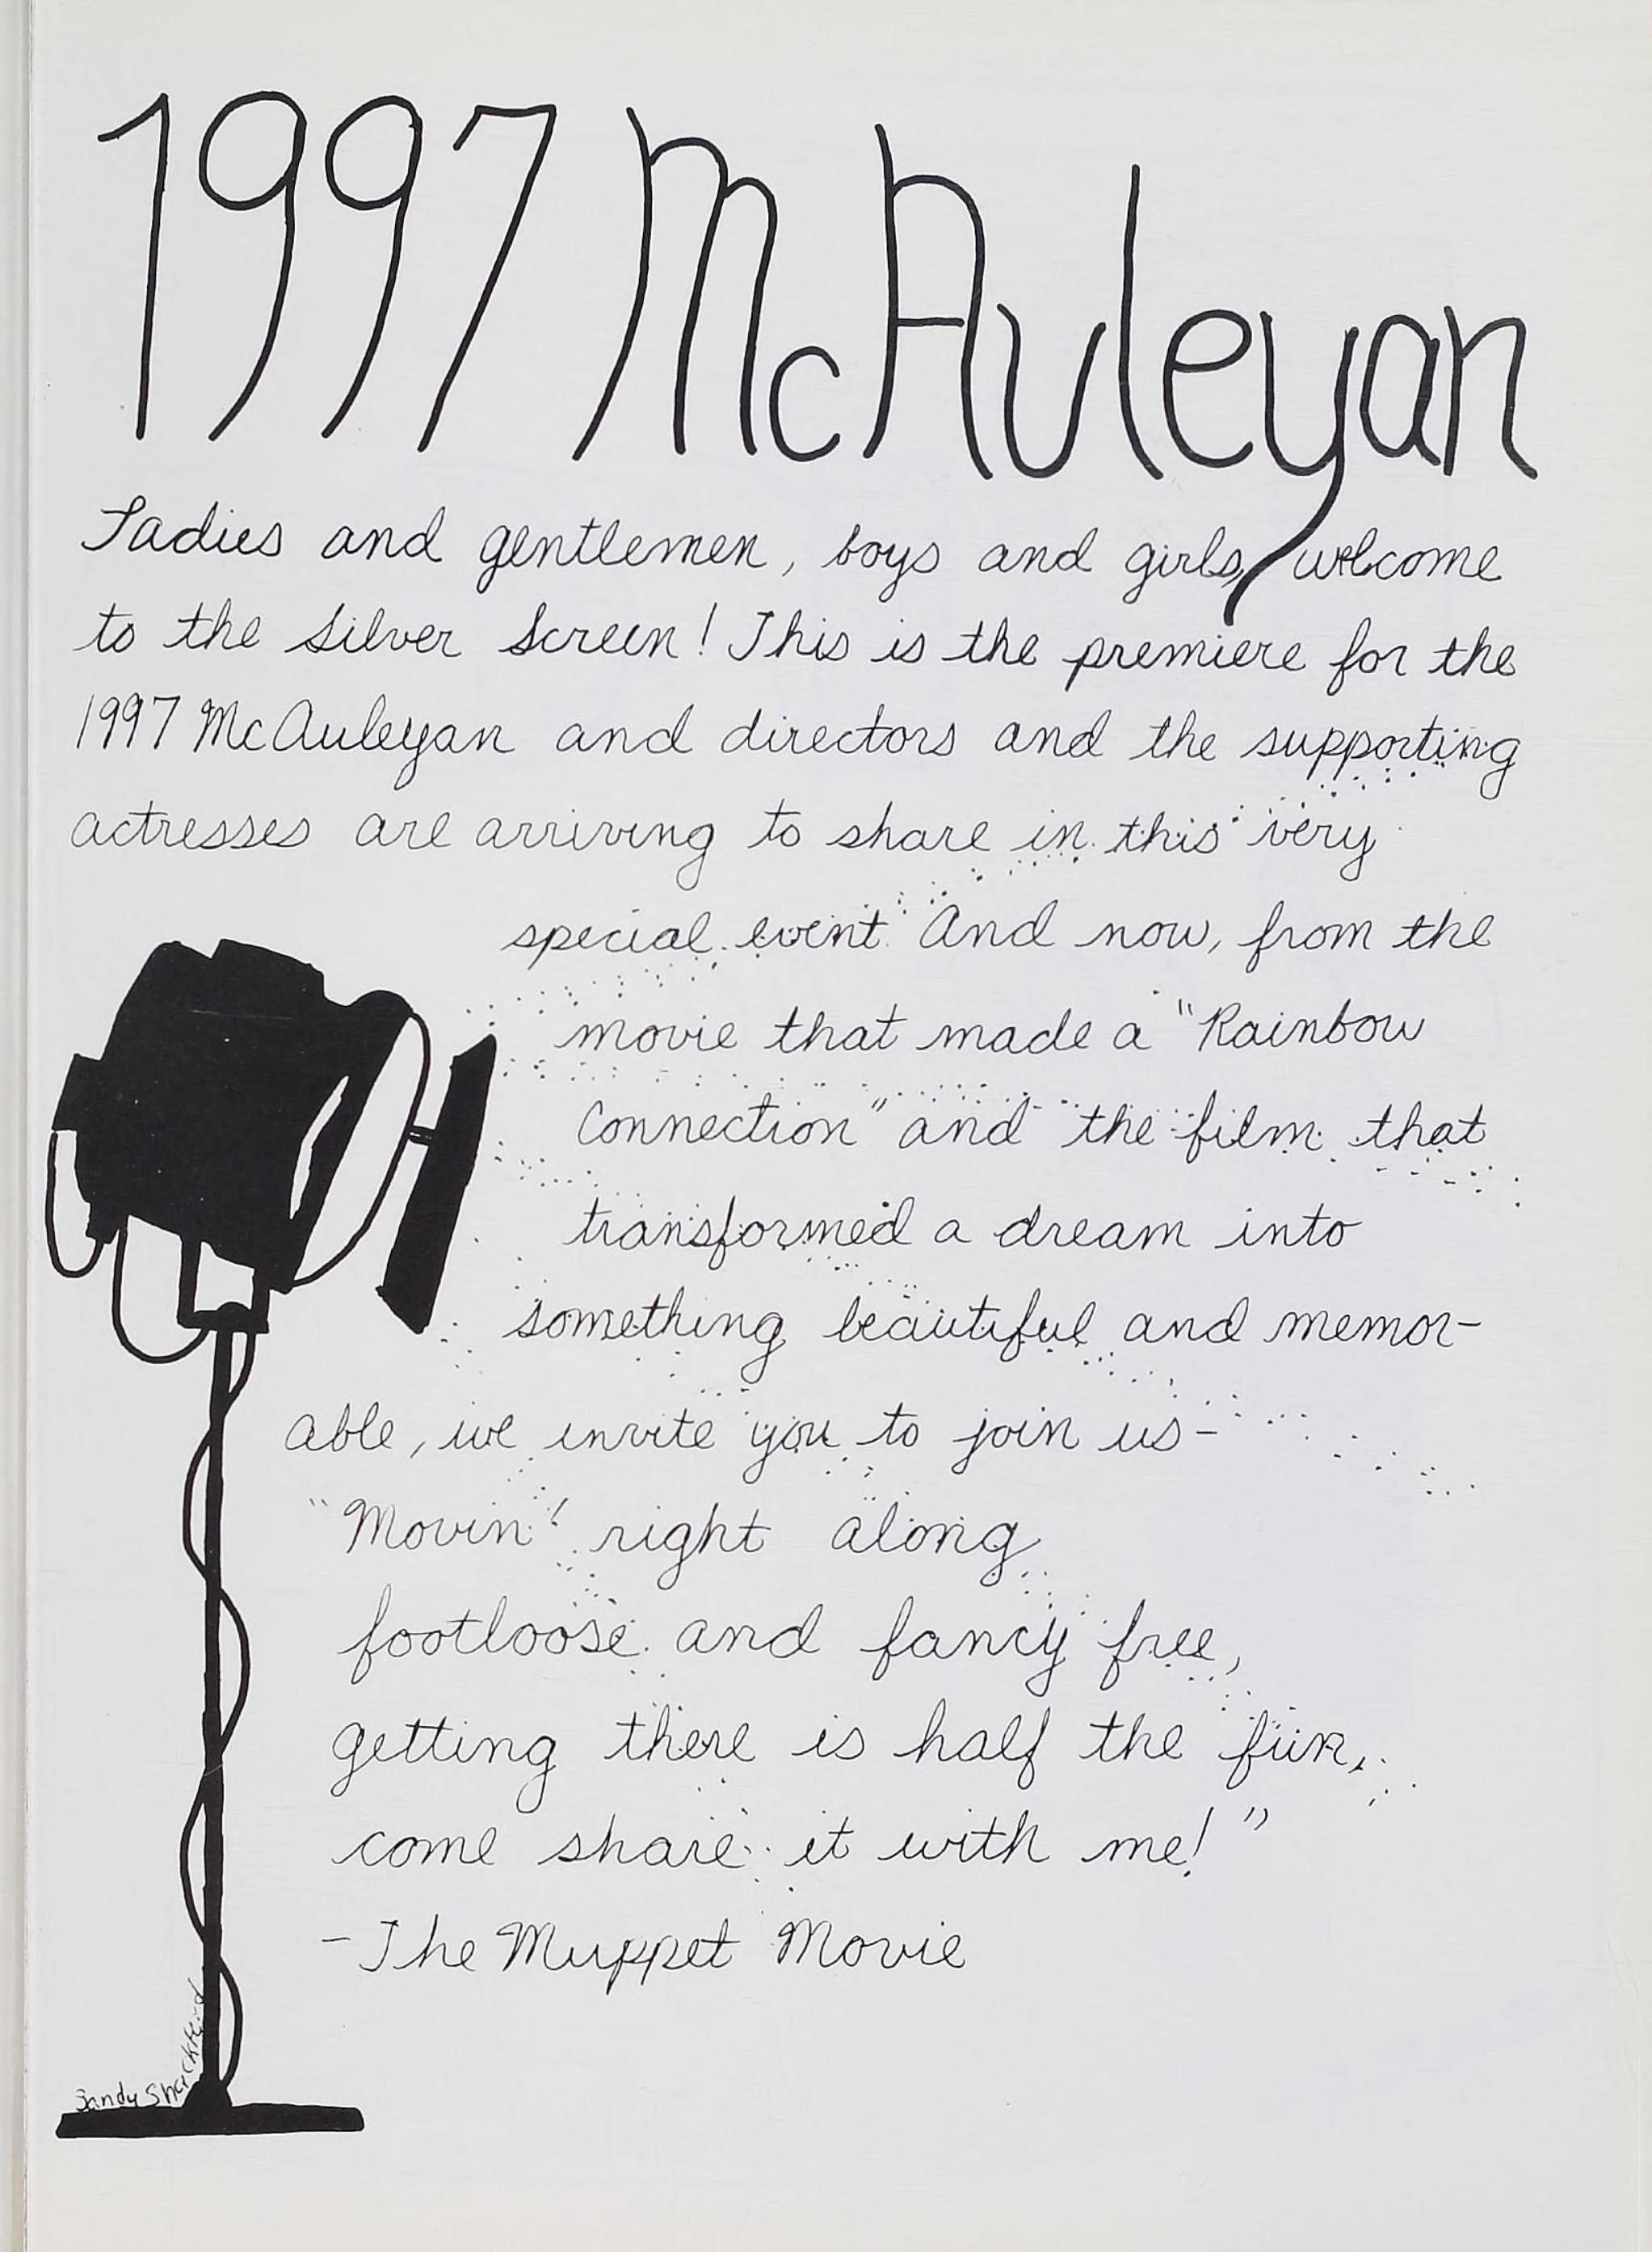 1997 McAuleyan
Ladies and gentlemen, boys and girls, welcome
to the Silver Screen! This is the premiere for the
1997 McAuleyan and directors and the supporting
actresses are arriving to share in this very
special event. And now, from the
movie that made a "Rainbow
Connection" and the film that
transformed a dream into
something beautiful and memor-
able, we invite you to join us-
"Movin' right along
footloose and fancy free,
getting there is half the fun,
come share it with me!"
- The Muppet Movie
Sandy